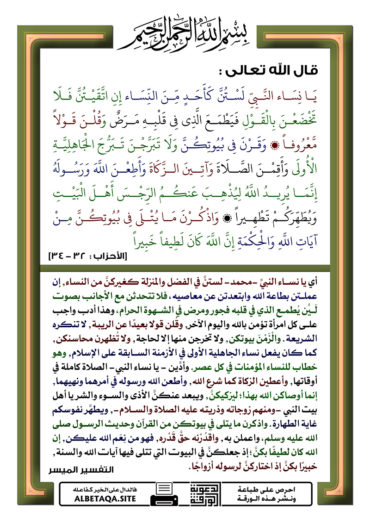 بسم الله الرحمن الرحيم
قال الله تعالى :
يَا نِسَاء النَّبِيِّ لَسْتُنَّ كَأَحَدٍ مِّنَ النِّسَاء إِنِ اتَّقَيْتُنَّ فَلَا
تَخْضَعْنَ بِالْقَوْلِ فَيَطْمَعَ الَّذِي فِي قَلْبِهِ مَرَضٌ وَقُلْنَ قَوْلاً
مَّعْرُوفاً ۞ وَقَرْنَ فِي بُيُوتِكُنَّ وَلَا تَبَرَّجْنَ تَبَرُّجَ الْجَاهِلِيَّةِ
الْأُولَى وَأَقِمْنَ الصَّلَاةَ وَآتِينَ الزَّكَاةَ وَأَطِعْنَ اللَّهَ وَرَسُولَهُ
إِنَّمَا يُرِيدُ اللَّهُ لِيُذْهِبَ عَنكُمُ الرِّجْسَ أَهْلَ الْبَيْتِ
وَيُطَهِّرَكُمْ تَطْهِيراً ۞ وَاذْكُرْنَ مَا يُتْلَى فِي بُيُوتِكُنَّ مِنْ
آيَاتِ اللَّهِ وَالْحِكْمَةِ إِنَّ اللَّهَ كَانَ لَطِيفاً خَبِيراً
[الأحزاب : ٣٢ - ٣٤]
أي يا نساء النبيِّ -محمد- لستنَّ في الفضل والمنزلة كغيركنَّ من النساء، إن
عملتن بطاعة الله وابتعدتن عن معاصيه، فلا تتحدثن مع الأجانب بصوت
لَيِّن يُطمع الذي في قلبه فجور ومرض في الشهوة الحرام، وهذا أدب واجب
على كل امرأة تؤمن بالله واليوم الآخر، وقُلن قولا بعيدًا عن الريبة، لا تنكره
الشريعة. والْزَمْنَ بيوتكن، ولا تخرجن منها إلا لحاجة، ولا تُظهرن محاسنكن،
كما كان يفعل نساء الجاهلية الأولى في الأزمنة السابقة على الإسلام، وهو
خطاب للنساء المؤمنات في كل عصر. وأدِّين - يا نساء النبي- الصلاة كاملة في
أوقاتها، وأعطين الزكاة كما شرع الله، وأطعن الله ورسوله في أمرهما ونهيهما،
إنما أوصاكن الله بهذا؛ ليزكيكنَّ، ويبعد عنكنَّ الأذى والسوء والشر يا أهل
بيت النبي -ومنهم زوجاته وذريته عليه الصلاة والسلام-، ويطهِّر نفوسكم
غاية الطهارة. واذكرن ما يتلى في بيوتكن من القرآن وحديث الرسول صلى
الله عليه وسلم، واعملن به، واقدُرْنَه حقَّ قَدْره، فهو من نِعَم الله عليكن، إن
الله كان لطيفًا بكنَّ؛ إذ جعلكنَّ في البيوت التي تتلى فيها آيات الله والسنة،
خبيرًا بكنَّ إذ اختاركنَّ لرسوله أزواجًا.
التفسير الميسر
احرص على طباعة
ونشر هذه الورقة
الدعوية
الورقة
فالدال على الخير كفاعله
ALBETAQA.SITE